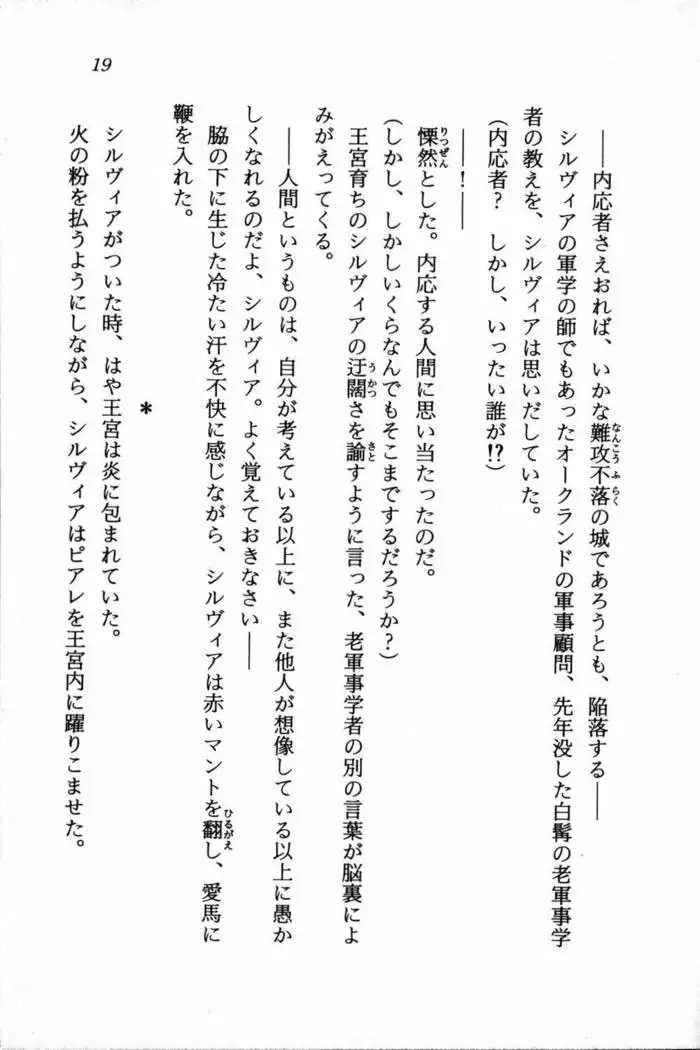 19
――内応者さえおれば、いかな難攻不落の城であろうとも、陥落する――
シルヴィアの軍学の師でもあったオークランドの軍事顧問、先年没した白髯の老軍事学
者の教えを、シルヴィアは思いだしていた。
(内応者?　しかし、いったい誰が!?)
――!――
慄然とした。内応する人間に思い当たったのだ。
(しかし、しかしいくらなんでもそこまでするだろうか?)
王宮育ちのシルヴィアの迂闊さを諭すように言った、老軍事学者の別の言葉が脳裏によ
みがえってくる。
――人間というものは、自分が考えている以上に、また他人が想像している以上に愚か
しくなれるのだよ、シルヴィア。よく覚えておきなさい――
脇の下に生じた冷たい汗を不快に感じながら、シルヴィアは赤いマントを翻し、愛馬に
鞭を入れた。
*
シルヴィアがついた時、はや王宮は炎に包まれていた。
火の粉を払うようにしながら、シルヴィアはピアレを王宮内に躍りこませた。